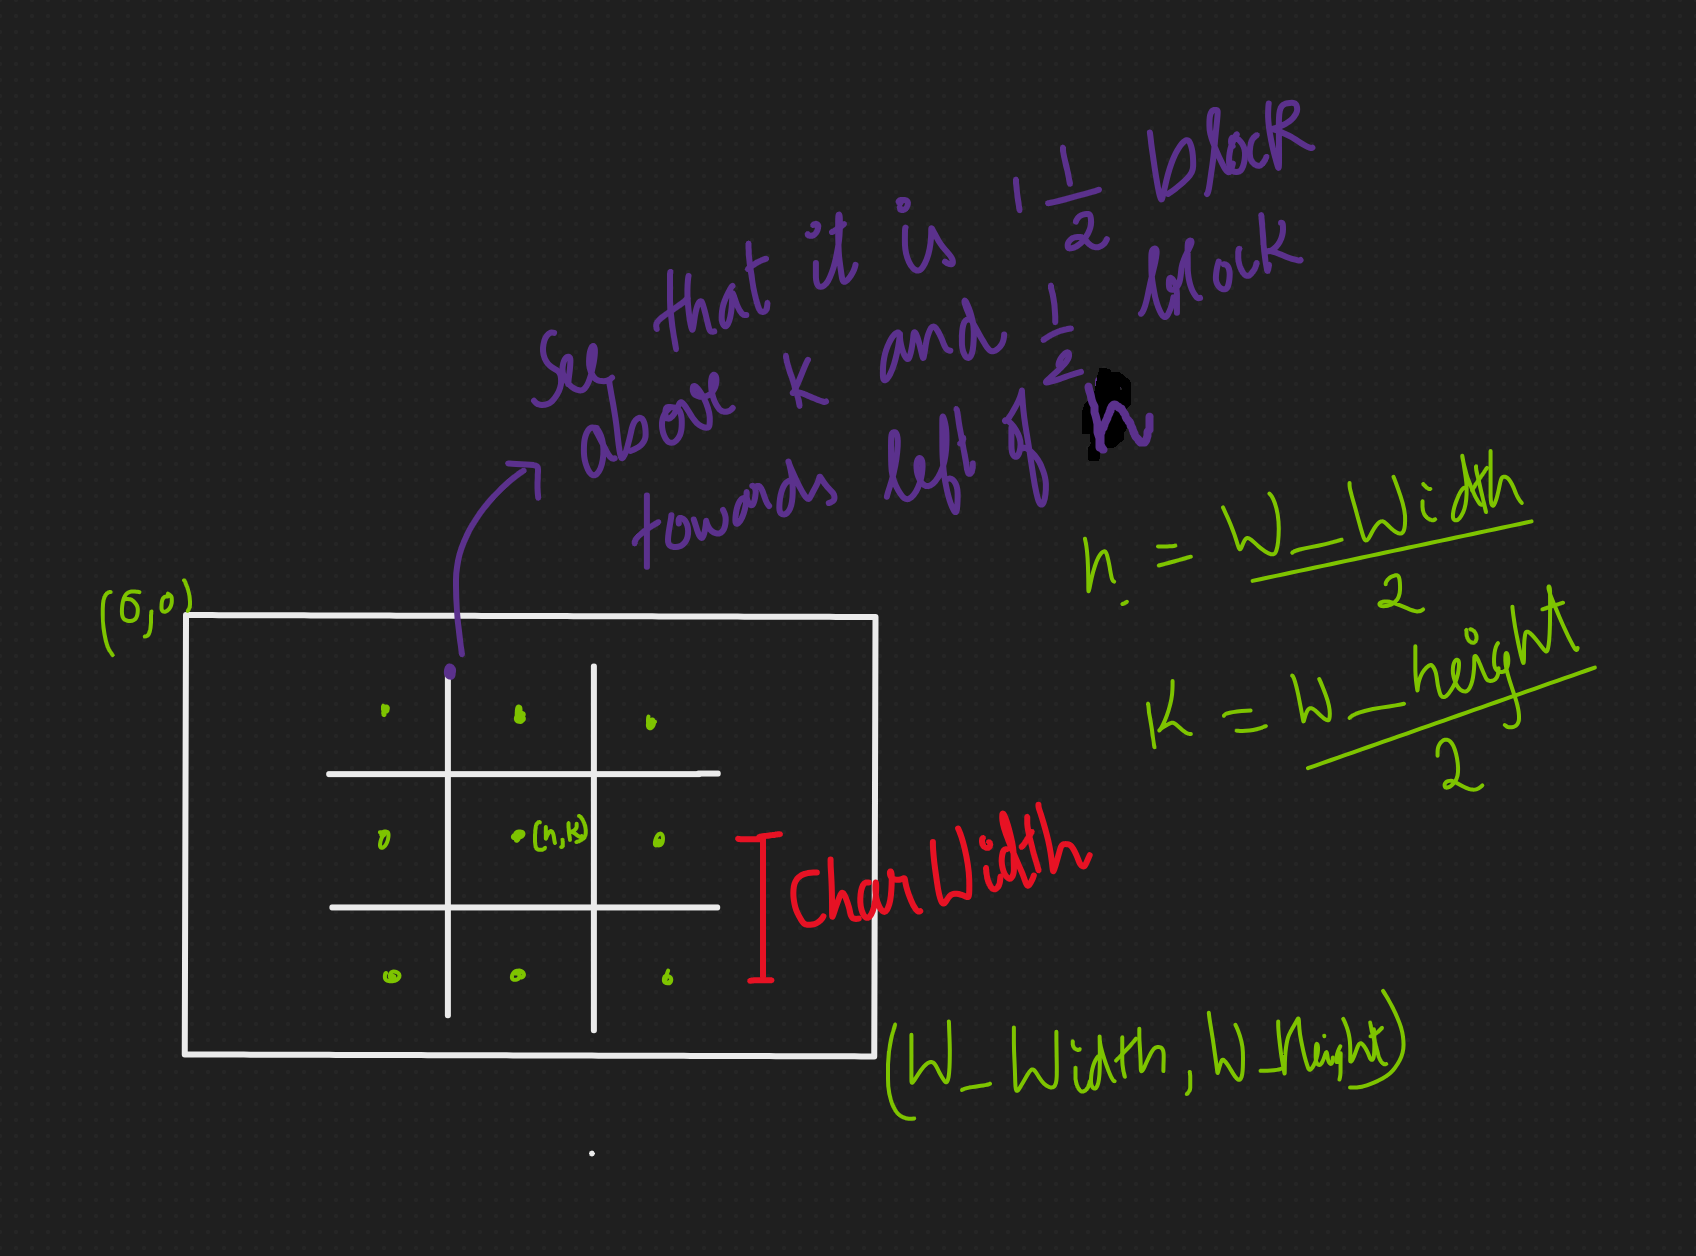 See that it is 1 1/2 block
above K and 1/2 block
towards left of h
h = W_Width / 2
K = W_height / 2
(0,0)
(h,K)
CharWidth
(W_Width, W_Height)